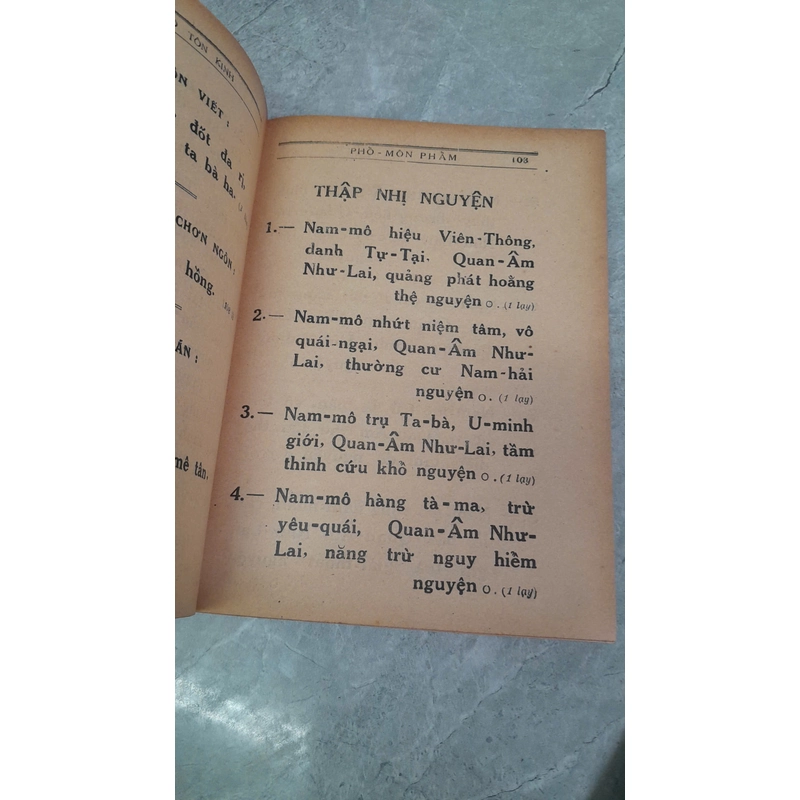 TÔN KINH
VIẾT :
đốt đa rị,
ta bà ha.
CHƠN NGÔN :
hồng.
ÁN :
mê tân,
PHỒ-MÔN PHẦM 103
THẬP NHỊ NGUYỆN
1.— Nam-mô hiệu Viên-Thông,
danh Tự-Tại. Quan-Âm
Như-Lai, quảng phát hoằng
thệ nguyện o. (1 lạy)
2.— Nam-mô nhứt niệm tâm, vô
quái-ngại, Quan-Âm Như-
Lai, thường cư Nam-hải
nguyện o. (1 lạy)
3.— Nam-mô trụ Ta-bà, U-minh
giới, Quan-Âm Như-Lai, tầm
thinh cứu khồ nguyện o. (1 lạy)
4.— Nam-mô hàng tà-ma, trừ
yêu-quái, Quan-Âm Như-
Lai, năng trừ nguy hiềm
nguyện o. (1 lạy)